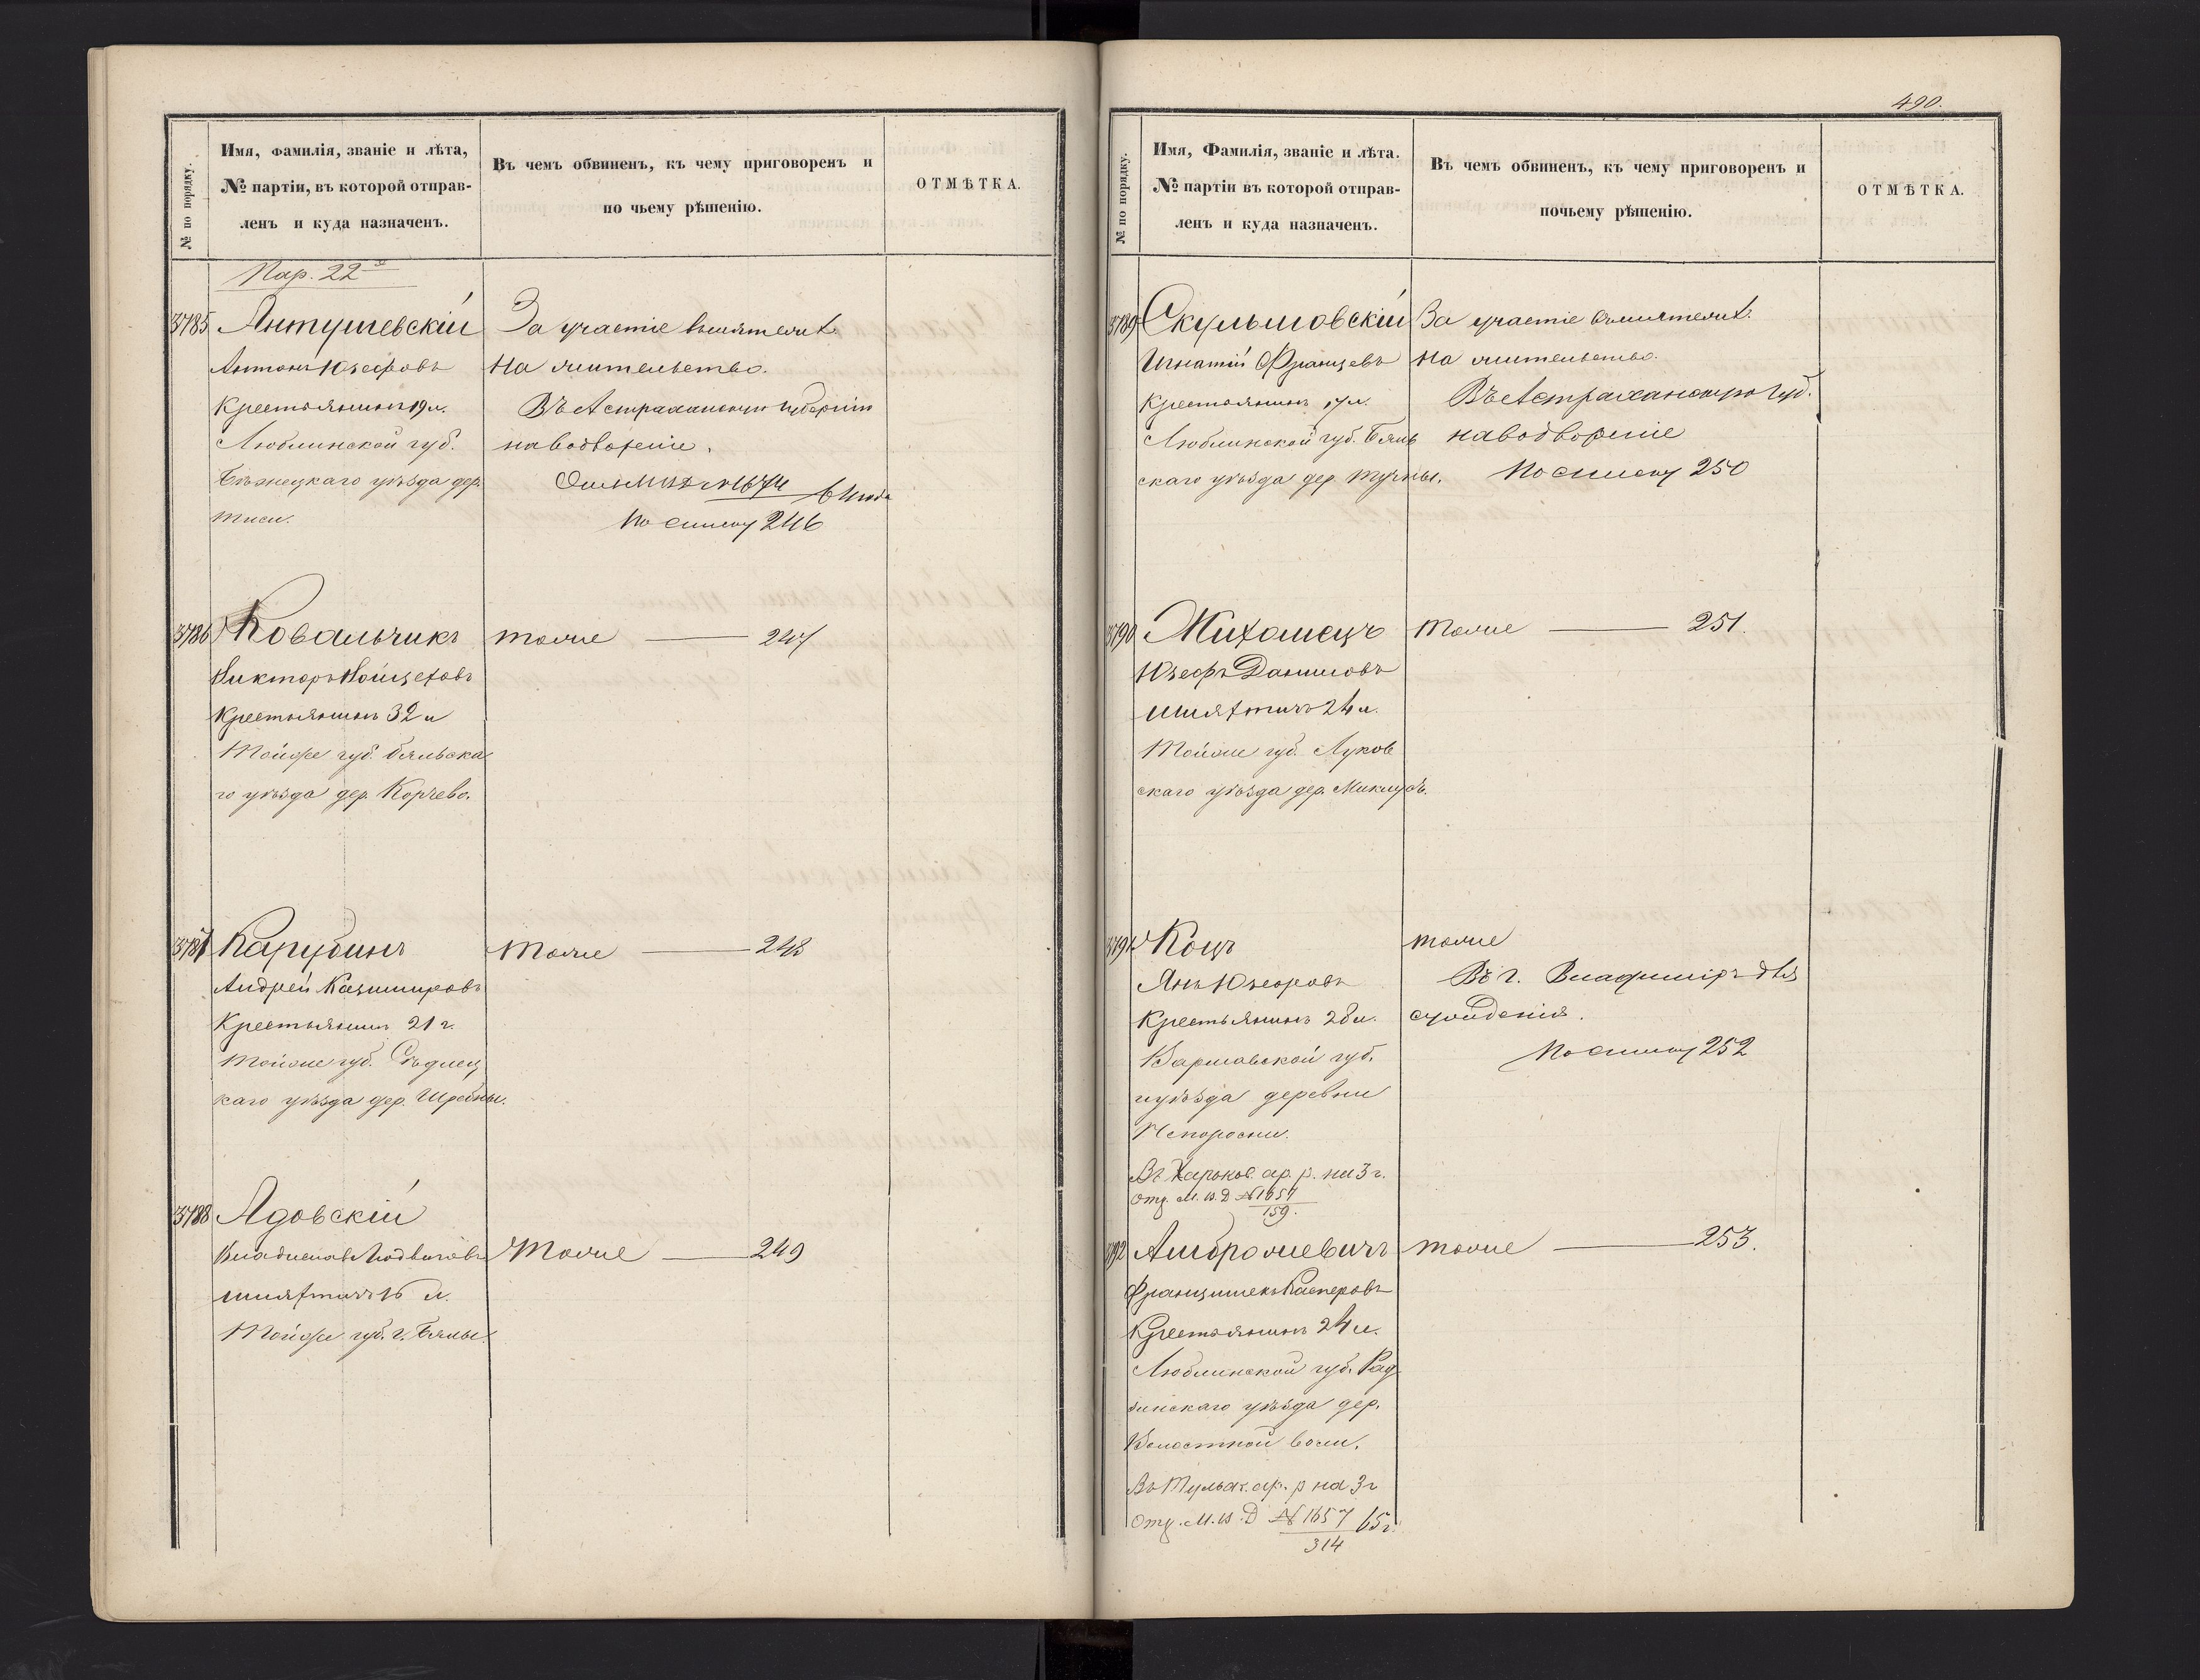 № по порядку.
Имя, фамилія, званіе и лѣта,
№ партіи, въ которой отправ-
ленъ и куда назначенъ.
Въ чемъ обвиненъ, къ чему приговоренъ и
по чьему рѣшенію.
ОТМѢТКА.
Пар. 22
3785 Антушевскій
Антонъ Юзефовъ
Крестьянинъ 19 л.
Люблинской губ.
уѣзда дер.
За участіе въ мятежѣ
На жительство.
Въ Астраханскую губернію
на водвореніе.
По списку 246
3786 Ковальчикъ
Викторъ Войцеховъ
Крестьянинъ 32 л
Тойже губ. Бяльска
го уѣзда дер. Корчево.
тоже — 247
3787 Карубинъ
Андрей Казимировъ
Крестьянинъ 21 г.
Тойже губ. Сѣдлец
каго уѣзда дер.
Тоже — 248
3788 Ядовскій
Владиславъ Людвиговъ
шляхтичъ 16 л.
Тойже губ. г. Бялы.
Тоже — 249
490.
№ по порядку.
Имя, Фамилія, званіе и лѣта.
№ партіи въ которой отправ-
ленъ и куда назначенъ.
Въ чемъ обвиненъ, къ чему приговоренъ и
почьему рѣшенію.
ОТМѢТКА.
3789 Скульмовскій
Игнатій Францевъ
Крестьянинъ 17 л.
Люблинской губ. Бяль
скаго уѣзда дер. Тучны.
За участіе въ мятежѣ.
На жительство.
Въ Астраханскую Губ.
на водвореніе
По списку 250
3790 Михалецъ
Юзефъ Даниловъ
шляхтичъ 24 л.
Тойже губ. Луков
скаго уѣзда дер.
Тоже — 251.
3791 Коцъ
Янъ Юзефовъ
Крестьянинъ 28 л.
Варшавской губ.
и уѣзда деревни
тоже
Въ г. Владиміръ для
сужденія.
По списку 252
Въ Харьков. ар. р. на 3 г.
Отз. М. В. Д № 1657
159.
3792 Амброжевичъ
Францишекъ Касперовъ
Крестьянинъ 24 л.
Люблинской губ. Рад
зинскаго уѣзда дер.
воли.
тоже — 253.
Въ Тульск. ар. р на 3 г
Отз. М. В. Д № 1657 65 г.
314